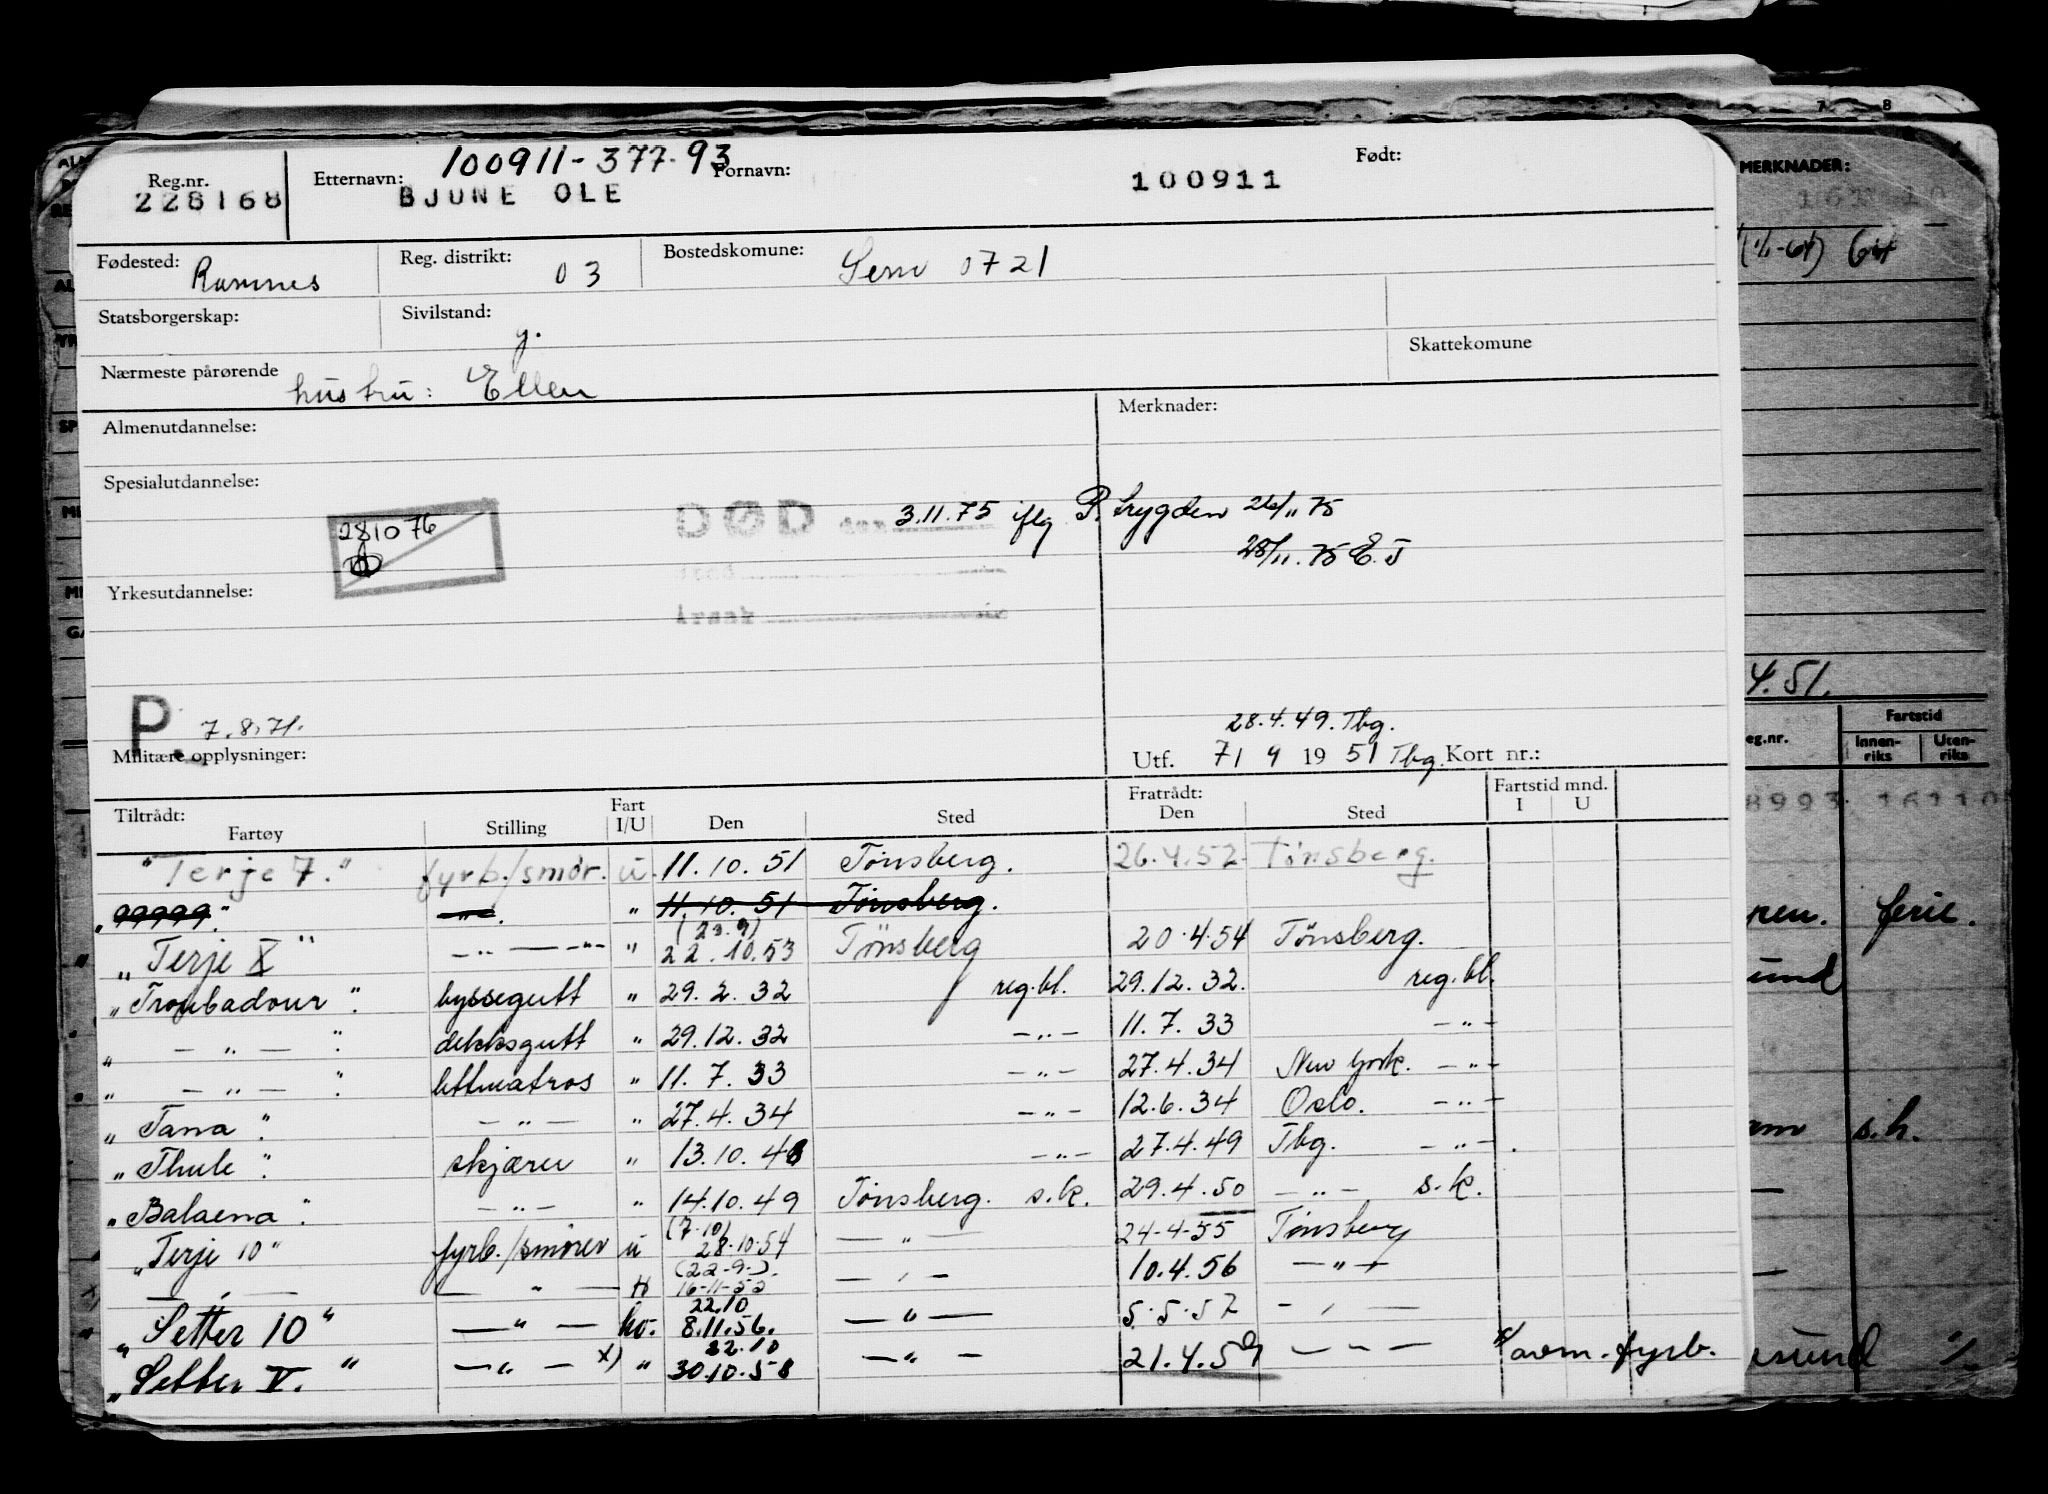 7 8
100911-377-93
Reg.nr. Etternavn: Fornavn: Født:
228168 BJUNE OLE 100911
Fødested: Ramnes Reg. distrikt: 03 Bostedskomune: Sem 0721
Statsborgerskap: Sivilstand: g.
Skattekomune
Nærmeste pårørende hustru: Ellen
Almenutdannelse: Merknader:
Spesialutdannelse:
281076
DØD den 3.11.75 iflg P.trygden 26/11 75
28/11.75 E.J
sted
Yrkesutdannelse:
årsak
P. 7.8.71.
28.4.49. Tbg.
Militære opplysninger: Utf. 7/9 1951 Tbg. Kort nr.:
Tiltrådt: Fart Fratrådt: Fartstid mnd.
Fartøy Stilling I/U Den Sted Den Sted I U
"Terje 7." fyrb./smør. u. 11.10.51 Tønsberg. 26.4.52 Tønsberg.
" 11.10.51 Tønsberg.
(23.9)
"Terje X" -"- -"- " 22.10.53 Tønsberg 20.4.54 Tønsberg.
"Troubadour". byssegutt " 29.2.32 reg.bl. 29.12.32. reg.bl.
" -"- ". dekksgutt " 29.12.32 -"- 11.7.33 -"-
" -"- ". lettmatros " 11.7.33 -"- 27.4.34 New York. -"-
"Tana". -"- " 27.4.34 -"- 12.6.34 Oslo. -"-
"Thule". skjærer " 13.10.48 -"- 27.4.49 Tbg. -"-
"Balaena". -"- " 14.10.49 Tønsberg. s.k. 29.4.50 -"- s.k.
(7.10)
"Terje 10" fyrb./smører u 28.10.54 -"- 24-4-55 Tønsberg
(22-9-)
-"- -"- 16-11-55 -"- 10.4.56 -"-
22.10
"Setter 10" -"- ho. 8.11.56. -"- 5.5.57 -"-
22.10
"Setter V." -"- x) " 30.10.58 -"- 21.4.59 -"- x/ avm. fyrb.
MERKNADER:
64
4.51.
Fartstid
eg.nr. Innen-riks Uten-riks
8993
ren. ferie.
und
s.h.
sund